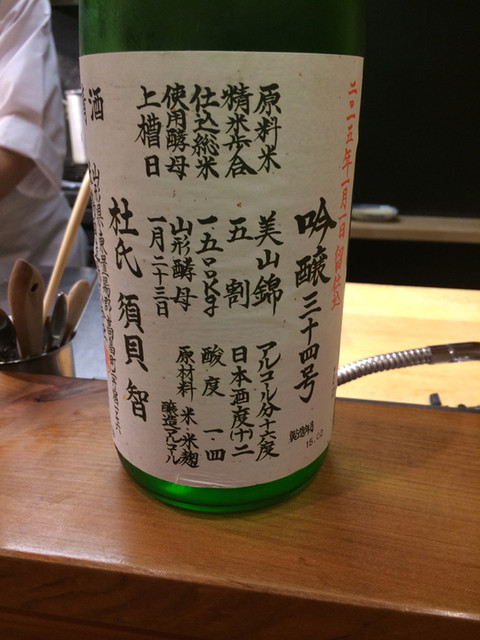 二〇一五年一月一日 留仕込
吟醸三十四号
製造年月
15.02
原料米 美山錦 アルコール分十六度
精米歩合 五割 日本酒度(+)二
仕込総米 一五〇〇kg 酸度 一・四
使用酵母 山形酵母 原材料 米・米麹
上槽日 一月二十三日 醸造アルコール
杜氏 須貝 智
清酒
山形県東置賜郡高畠町